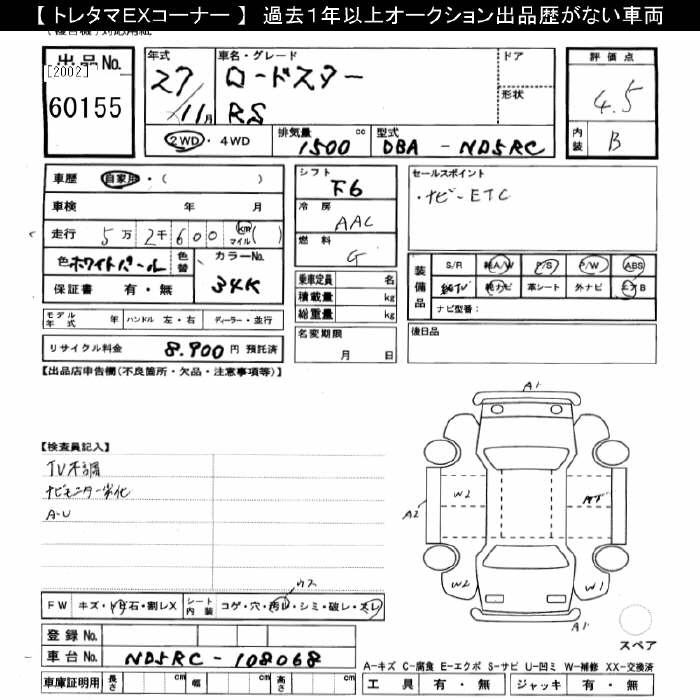 【 トレタマEXコーナー 】 過去1年以上オークション出品歴がない車両
出品No.
[2002]
60155
年式
27/11月
車名・グレード
ロードスター
RS
ドア
形状
評価点
4.5
内装
B
2WD・4WD
排気量
1500 cc
型式
DBA - ND5RC
車歴 自家用・( )
車検 年 月
走行 5万 2千 6 0 0 km マイル ( )
色 ホワイトパール
色替
カラーNo.
34K
保証書 有・無
シフト
F6
冷房
AAC
燃料
G
乗車定員 名
積載量 kg
総重量 kg
名変期限
月 日
セールスポイント
・ナビ-ETC
装備品
S/R 純A/W P/S P/W ABS
純TV 純ナビ 革シート 外ナビ エアB
ナビ型番：
後日品
モデル年式 年 ハンドル 左・右 ディーラー・並行
リサイクル料金 8,900 円 預託済
【出品店申告欄(不良箇所・欠品・注意事項等)】
【検査員記入】
TV不調
ナビモニター劣化
A-U
A1
A2
W2
W2
W1
A1
スペア
FW キズ・ 石・割レX
シート内装 コゲ・穴・汚レ・シミ・破レ・スレ
ウス
登録No.
車台No. ND5RC - 108068
車庫証明用 長さ cm 幅 cm 高さ cm
A-キズ C-腐食 E-エクボ S-サビ U-凹ミ W-補修 XX-交換済
工具 有・無 ジャッキ 有・無